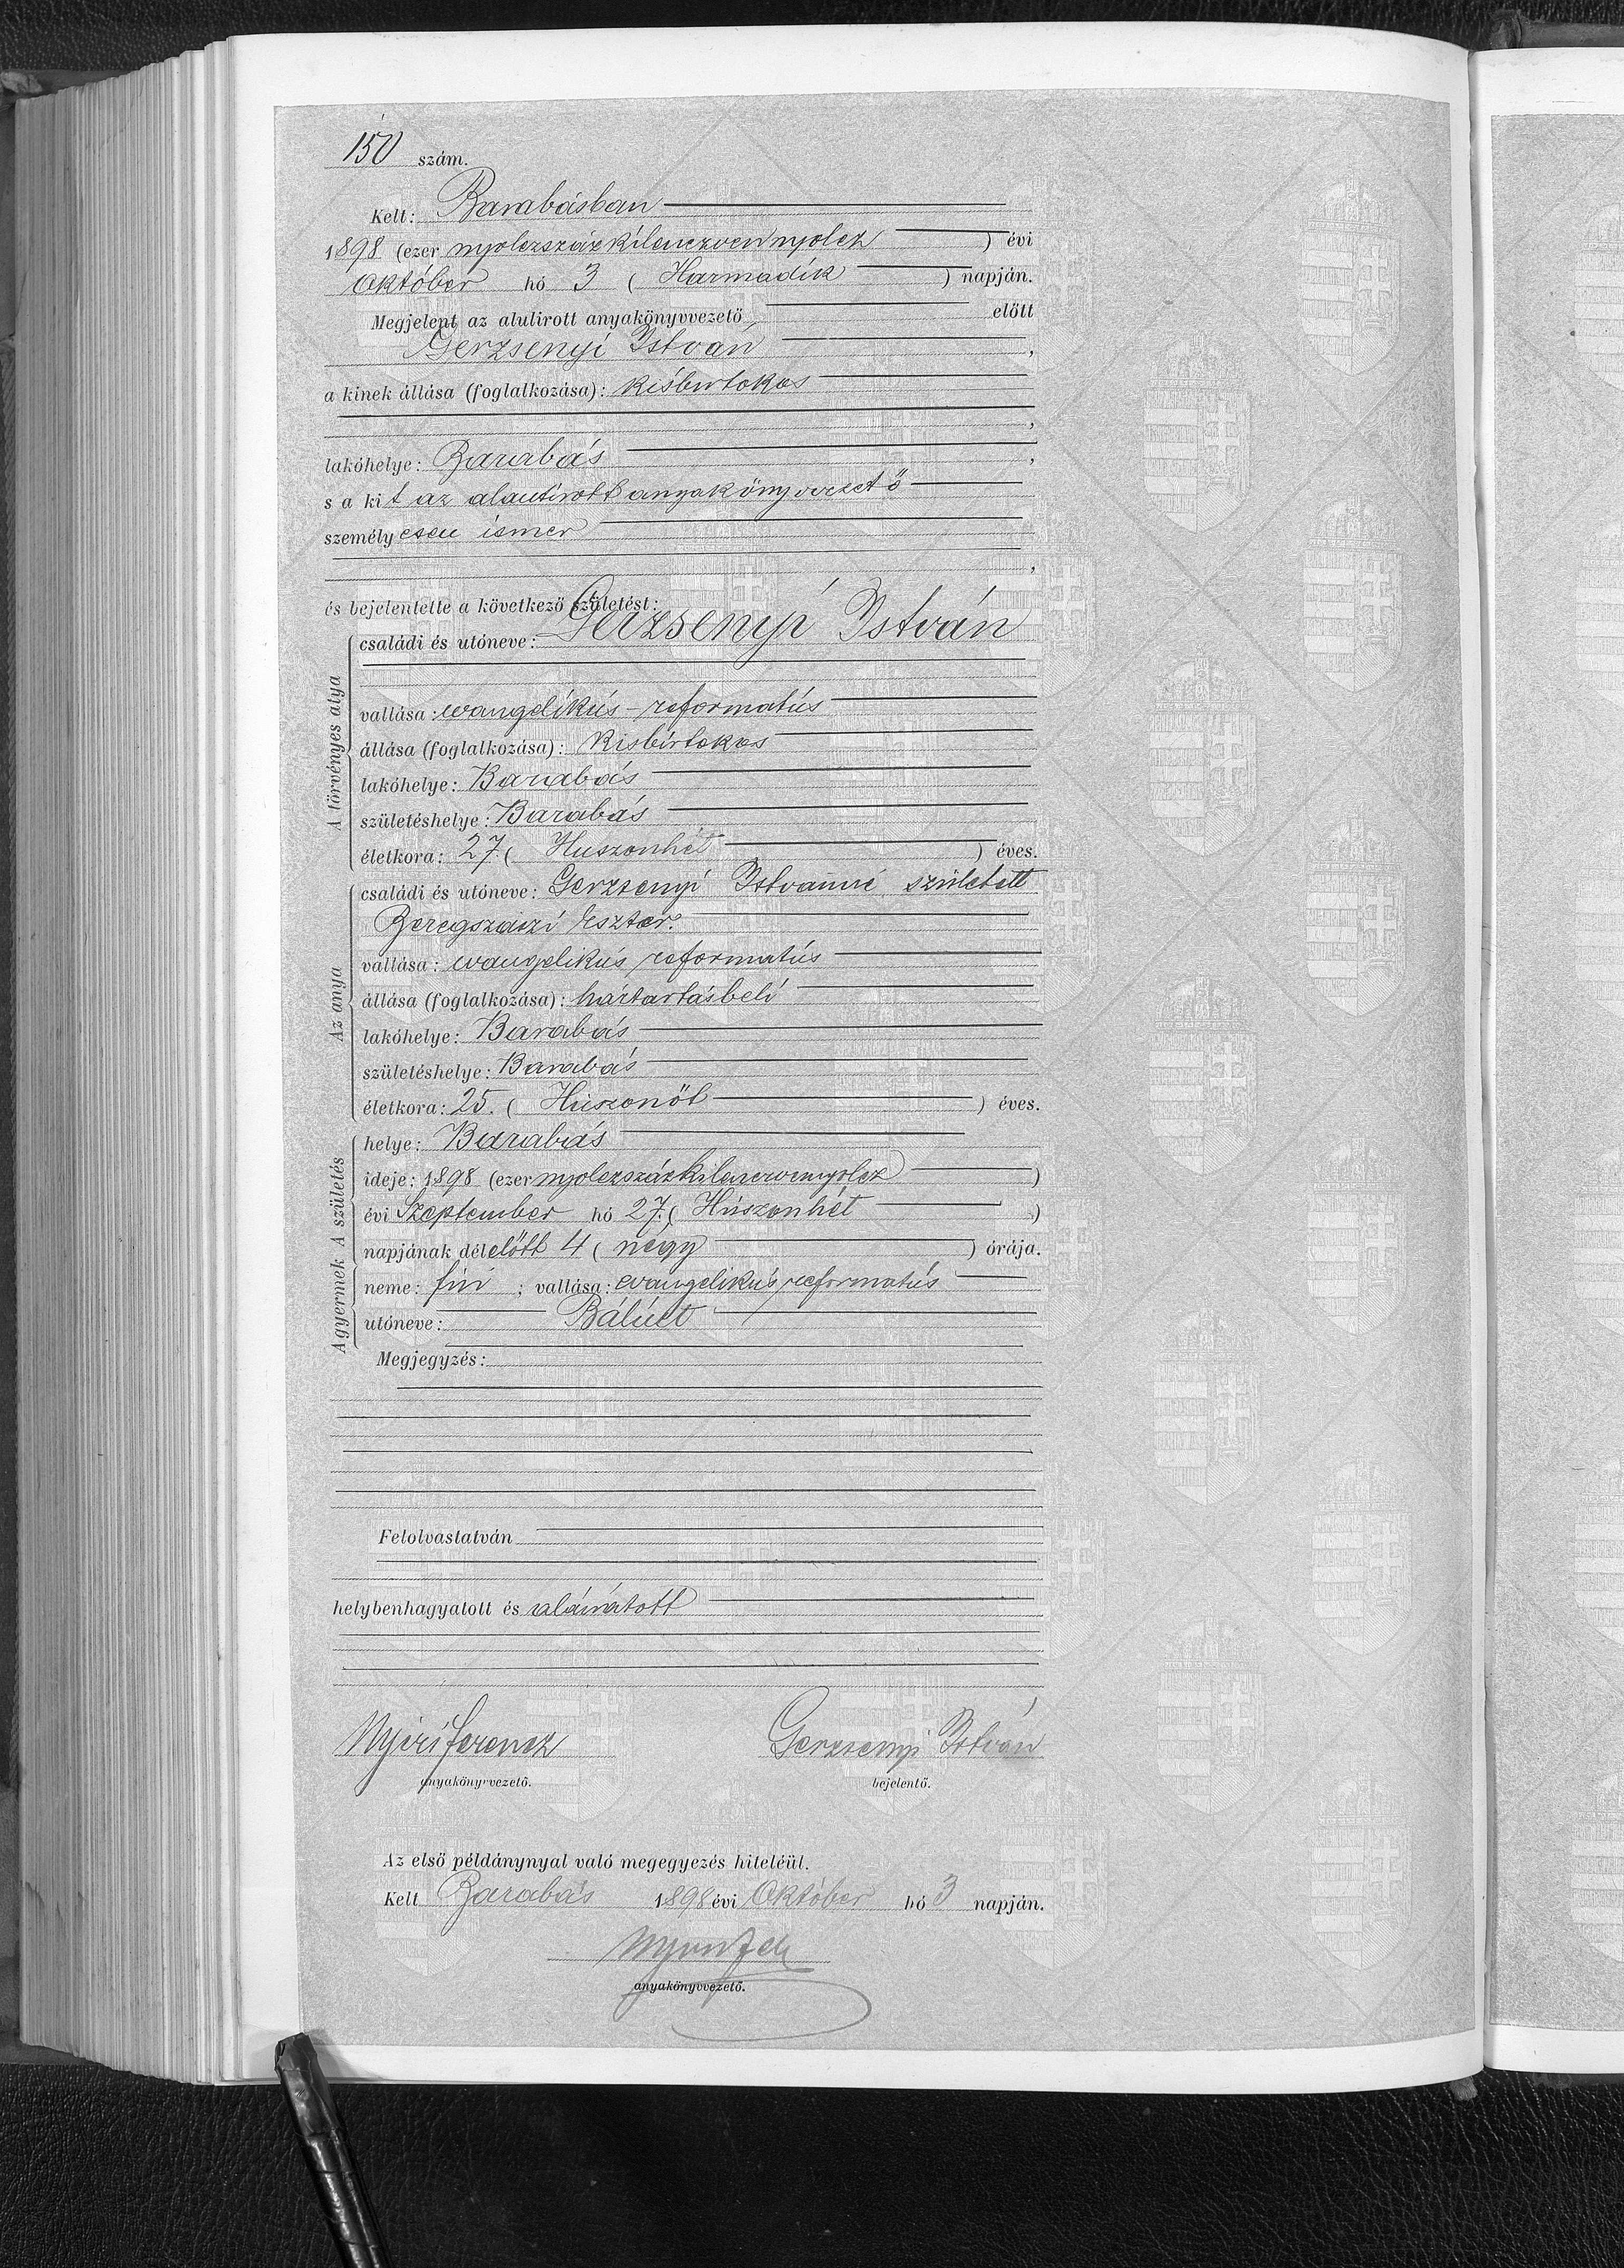 150 szám.
Kelt: Barabásban
1898 (ezer nyolczszázkilenczvennyolcz) évi
Október hó 3 (Harmadik) napján.
Megjelent az alulirott anyakönyvvezető előtt
Gerzsenyi István,
a kinek állása (foglalkozása): kisbirtokos
,
lakóhelye: Barabás,
s a kit az alantirott anyakönyvvezető
személyesen ismer
,
és bejelentette a következő születést:
A törvényes atya
családi és utóneve: Gerzsenyi István
vallása: evangélikús-reformatús
állása (foglalkozása): Kisbirtokos
lakóhelye: Barabás
születéshelye: Barabás
életkora: 27. (Huszonhét) éves.
Az anya
családi és utóneve: Gerzsenyi Istvánné született
Beregszászi Eszter.
vallása: evangelikús reformatús
állása (foglalkozása): háztartásbeli
lakóhelye: Barabás
születéshelye: Barabás
életkora: 25. (Húszonöt) éves.
A születés
helye: Barabás
ideje: 1898 (ezer nyolczszázkilenczvennyolcz)
évi Szeptember hó 27. (Húszonhét)
napjának délelőtt 4 (négy) órája.
A gyermek
neme: fiú; vallása: evangelikús reformatús
utóneve: Bálint
Megjegyzés:
Felolvastatván
helybenhagyatott és aláiratott
Nyiri Ferencz Gerzsenyi István
anyakönyvvezető. bejelentő.
Az első példánynyal való megegyezés hiteléül.
Kelt Barabás 1898 évi Október hó 3 napján.
anyakönyvvezető.